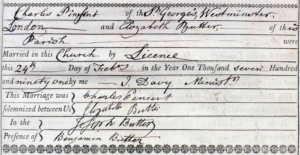 Charles Pinsent of the St Georges, Westminster,
London and Elizabeth Butter, of this
Parish were
Married in this Church by Licence
this 24th Day of Feby in the Year One Thousand seven Hundred
and ninety one by me J Davy Minister
This Marriage was Charles Pinsent
solemnized between Us Elizabeth Butter
In the Joseph Butter
Presence of Benjamin Butter